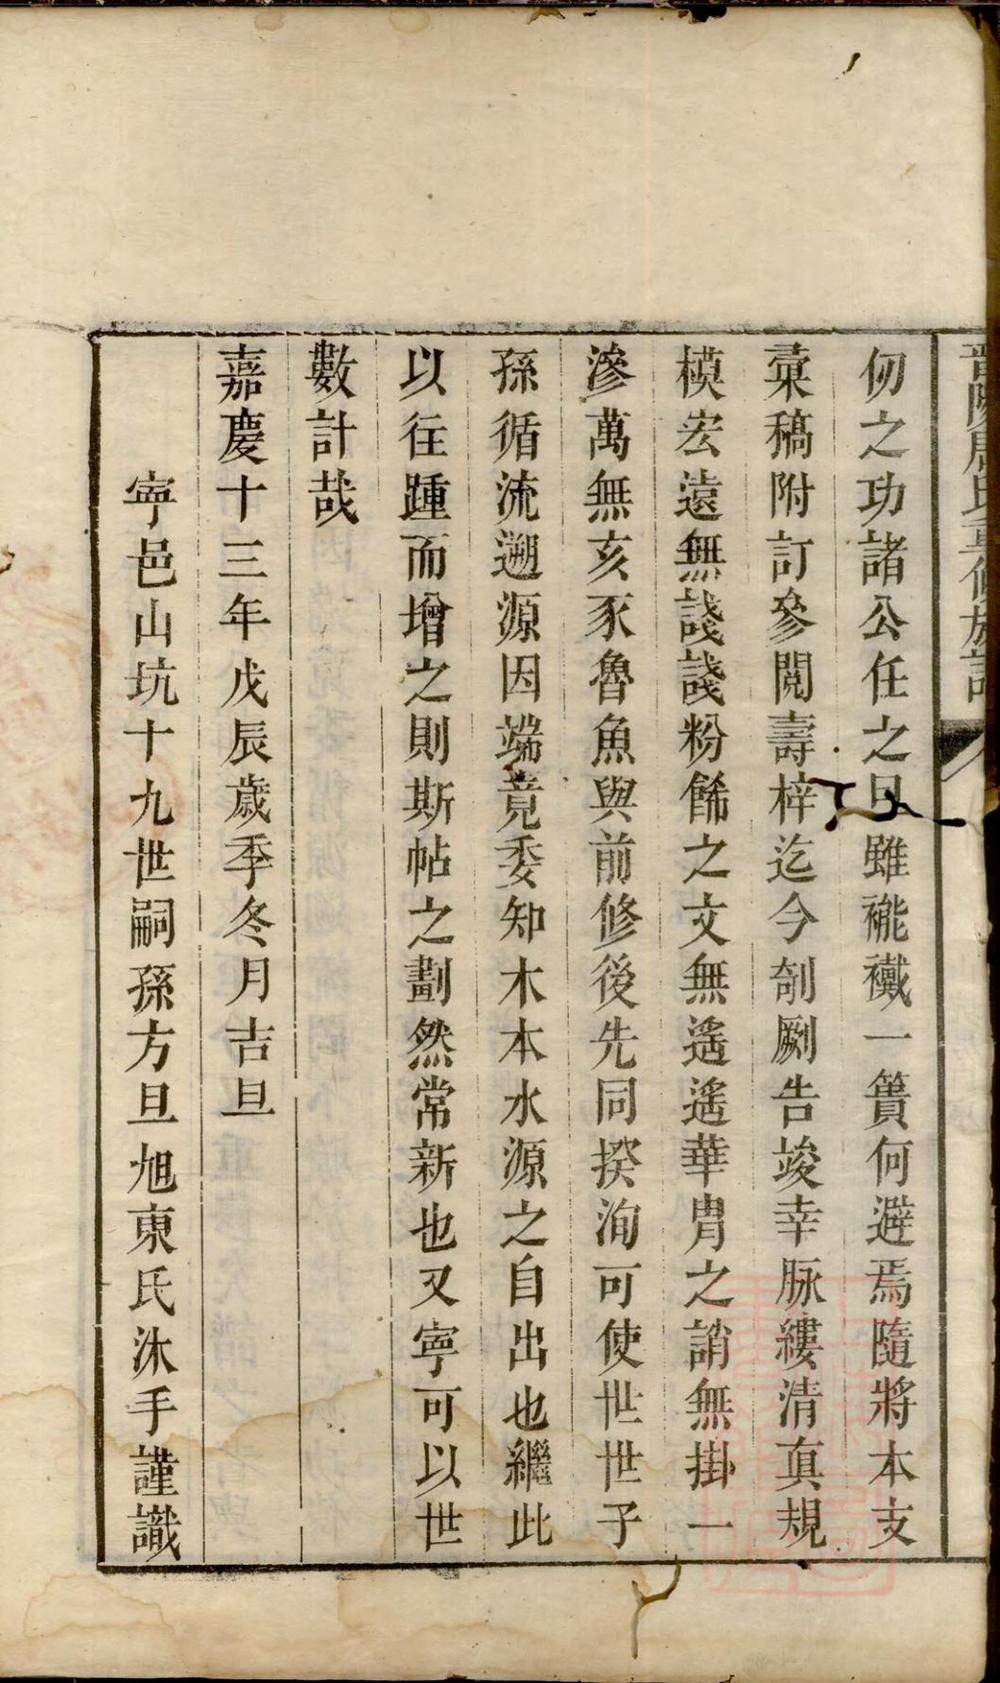 晋陵周氏重修族譜
仞之功諸公任之且雖褦襶一簣何避焉隨將本支
彚稿附訂參閱壽梓迄今剞劂告竣幸脉縷清眞規
模宏遠無諓諓粉餙之文無遙遙華胄之誚無掛一
滲萬無亥豕魯魚與前修後先同揆洵可使世世子
孫循流遡源因端竟委知木本水源之自出也繼此
以往踵而增之則斯帖之劃然常新也又寕可以世
數計哉
嘉慶十三年戊辰歲季冬月吉旦
寕邑山坑十九世嗣孫方旦旭東氏沐手謹識